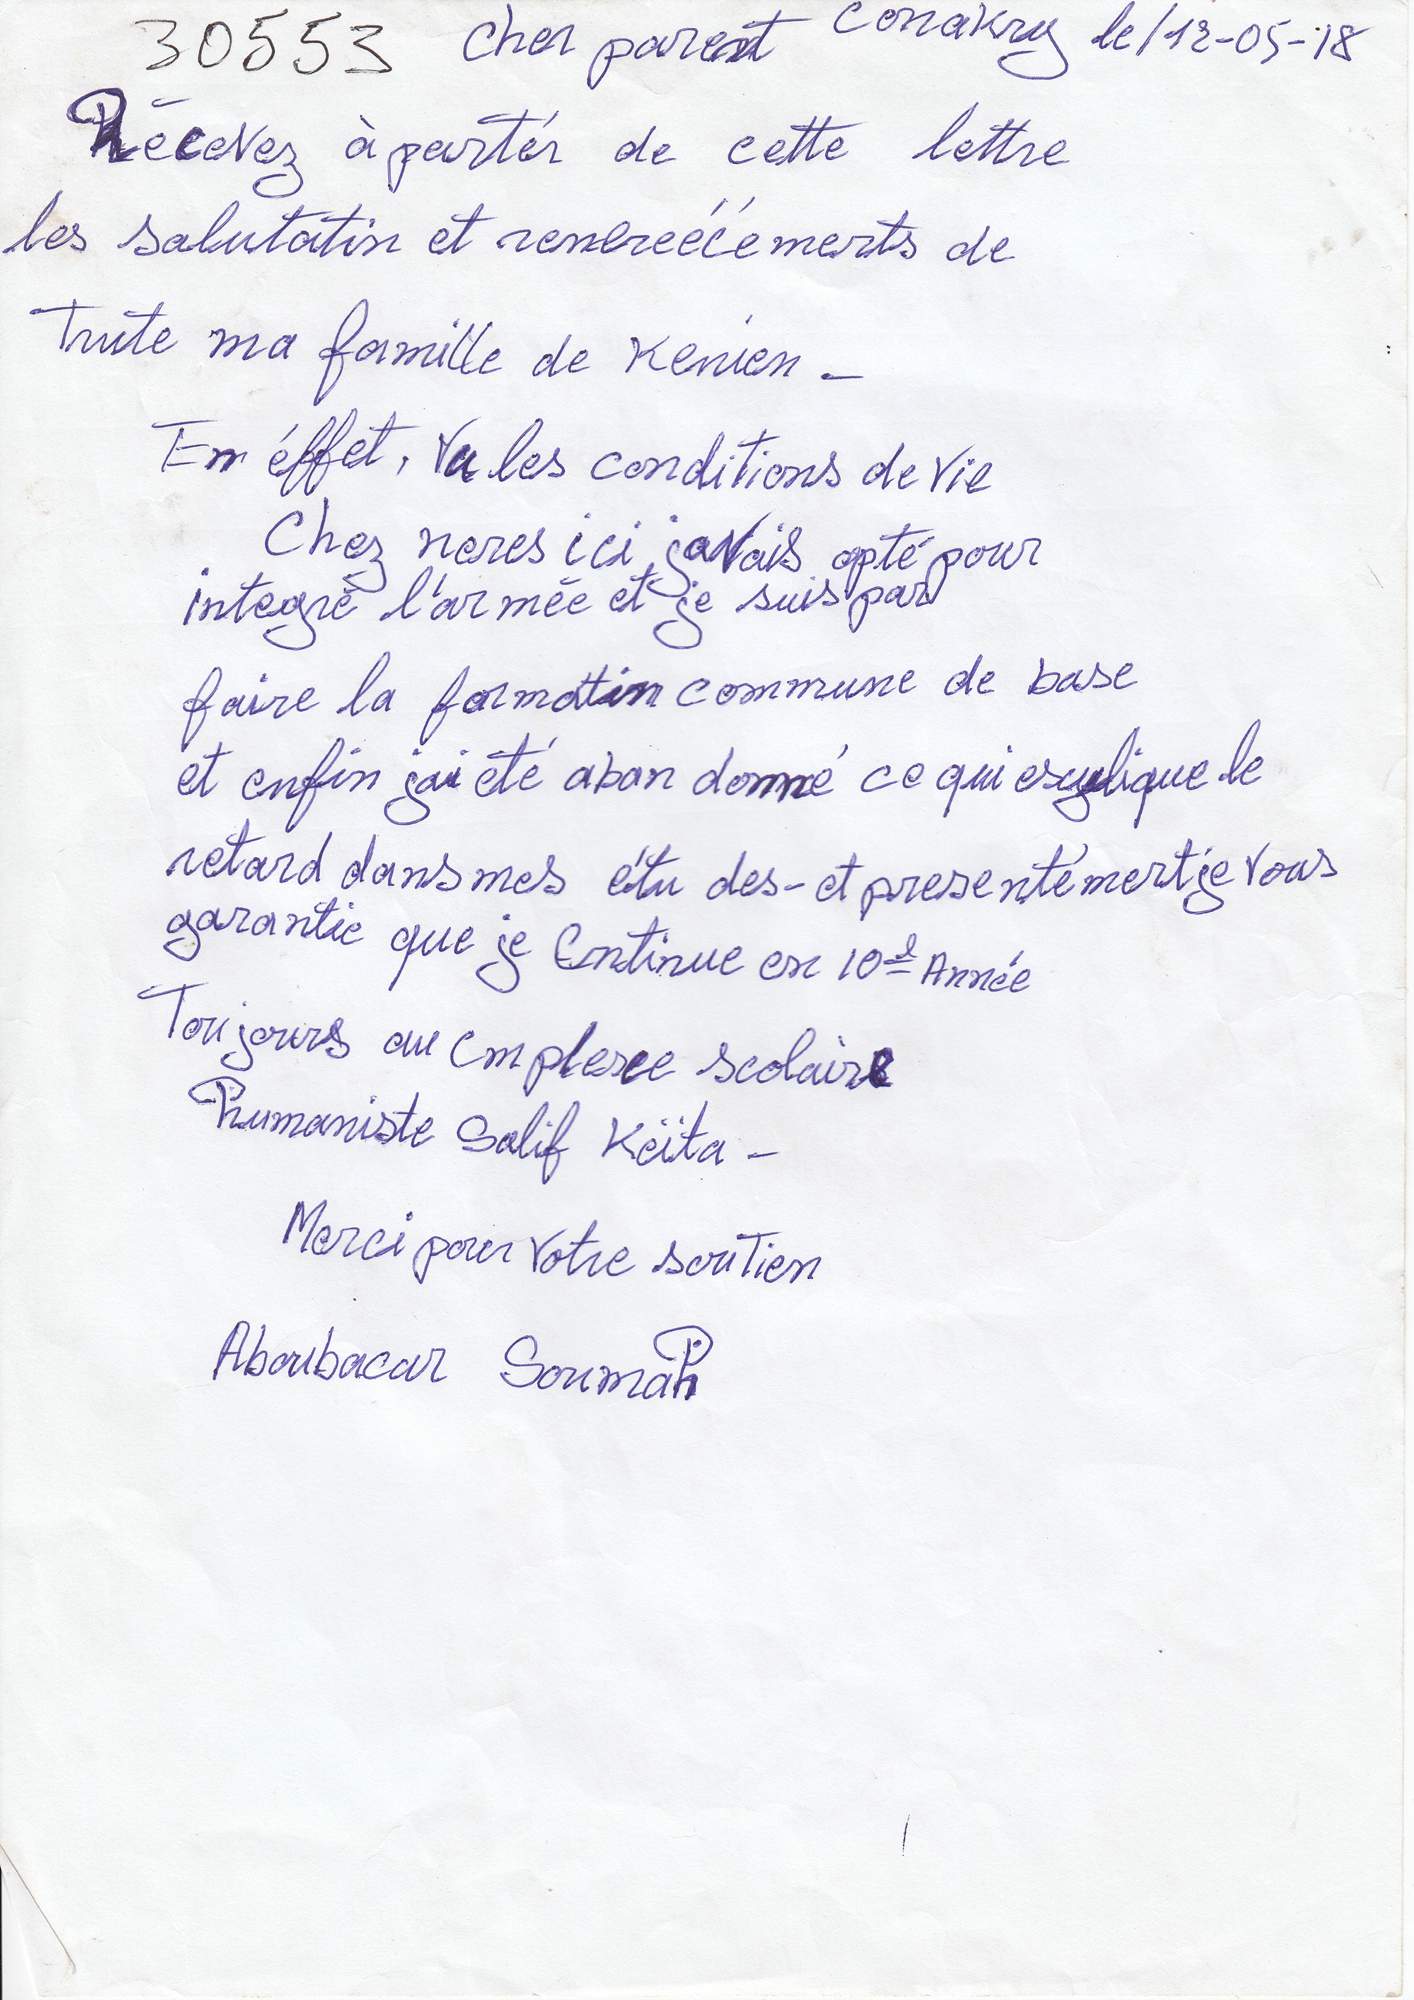 30553 Cher parent Conakry le/12-05-18
Récevez à partér de cette lettre
les salutatin et de
Toute ma famille de Kenien -
En éffet, vu les conditions de vie
Chez ici javais opté pour
integré l'armée et je suis par
faire la formation commune de base
et enfin jai été aban donné ce qui le
retard dans mes étu des - et presentément je vous
garantie que je Continue en 10è Année
Toujours au scolaire
humaniste Salif Keïta -
Merci pour votre soutien
Aboubacar Soumah